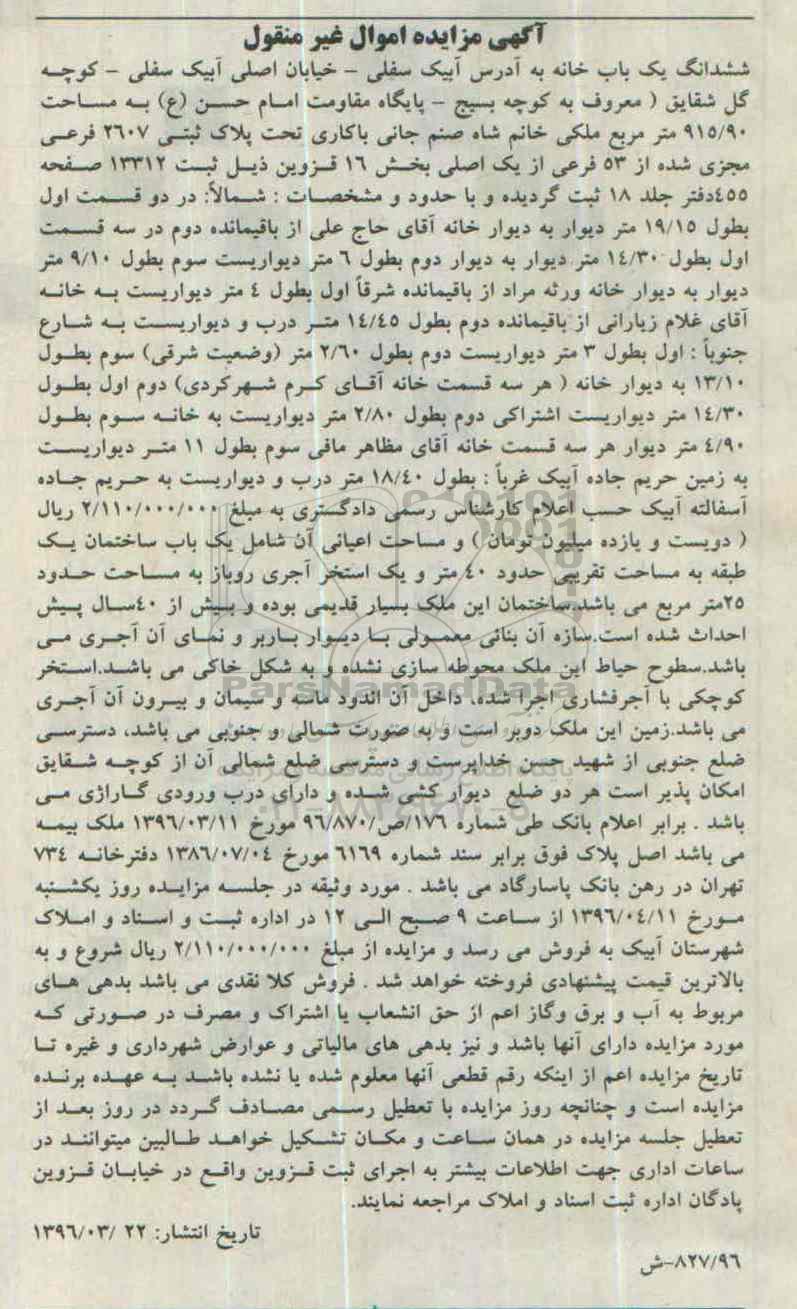 آگهی مزایده اموال غیر منقول
ششدانگ یک باب خانه به آدرس آبیک سفلی - خیابان اصلی آبیک سفلی - کوچه
گل شقایق ( معروف به کوچه بسیج - پایگاه مقاومت امام حسن (ع) به مساحت
۹۱۵/۹۰ متر مربع ملکی خانم شاه صنم جانی باکاری تحت پلاک ثبتی ۲۶۰۷ فرعی
مجزی شده از ۵۳ فرعی از یک اصلی بخش ۱۶ قزوین ذیل ثبت ۱۳۳۱۲ صفحه
۴۵۵دفتر جلد ۱۸ ثبت گردیده و با حدود و مشخصات : شمالاً: در دو قسمت اول
بطول ۱۹/۱۵ متر دیوار به دیوار خانه آقای حاج علی از باقیمانده دوم در سه قسمت
اول بطول ۱۴/۳۰ متر دیوار به دیوار دوم بطول ۶ متر دیواریست سوم بطول ۹/۱۰ متر
دیوار به دیوار خانه ورثه مراد از باقیمانده شرقاً اول بطول ۴ متر دیواریست به خانه
آقای غلام زیارانی از باقیمانده دوم بطول ۱۴/۴۵ متر درب و دیواریست به شارع
جنوباً : اول بطول ۳ متر دیواریست دوم بطول ۲/۶۰ متر (وضعیت شرقی) سوم بطول
۱۳/۱۰ به دیوار خانه ( هر سه قسمت خانه آقای کرم شهرکردی) دوم اول بطول
۱۴/۳۰ متر دیواریست اشتراکی دوم بطول ۲/۸۰ متر دیواریست به خانه سوم بطول
۴/۹۰ متر دیوار هر سه قسمت خانه آقای مظاهر مافی سوم بطول ۱۱ متر دیواریست
به زمین حریم جاده آبیک غرباً : بطول ۱۸/۴۰ متر درب و دیواریست به حریم جاده
آسفالته آبیک حسب اعلام کارشناس رسمی دادگستری به مبلغ ۲/۱۱۰/۰۰۰/۰۰۰ ریال
( دویست و یازده میلیون تومان ) و مساحت اعیانی آن شامل یک باب ساختمان یک
طبقه به مساحت تقریبی حدود ۴۰ متر و یک استخر آجری روباز به مساحت حدود
۲۵متر مربع می باشد.ساختمان این ملک بسیار قدیمی بوده و بیش از ۴۰سال پیش
احداث شده است.سازه آن بنائی معمولی با دیوار باربر و نمای آن آجری می
باشد.سطوح حیاط این ملک محوطه سازی نشده و به شکل خاکی می باشد.استخر
ParsNamadData
کوچکی با آجرفشاری اجرا شده، داخل آن اندود ماسه و سیمان و بیرون آن آجری
می باشد.زمین این ملک دوبر است و به صورت شمالی و جنوبی می باشد، دسترسی
ضلع جنوبی از شهید حسن خداپرست و دسترسی ضلع شمالی آن از کوچه شقایق
امکان پذیر است هر دو ضلع دیوار کشی شده و دارای درب ورودی گاراژی می
باشد . برابر اعلام بانک طی شماره ۱۷۶/ص/۹۶/۸۷۰ مورخ ۱۳۹۶/۰۳/۱۱ ملک بیمه
می باشد اصل پلاک فوق برابر سند شماره ۶۱۶۹ مورخ ۱۳۸۶/۰۷/۰۴ دفترخانه ۷۳۴
تهران در رهن بانک پاسارگاد می باشد . مورد وثیقه در جلسه مزایده روز یکشنبه
مورخ ۱۳۹۶/۰۴/۱۱ از ساعت ۹ صبح الی ۱۲ در اداره ثبت و اسناد و املاک
شهرستان آبیک به فروش می رسد و مزایده از مبلغ ۲/۱۱۰/۰۰۰/۰۰۰ ریال شروع و به
بالاترین قیمت پیشنهادی فروخته خواهد شد . فروش کلا نقدی می باشد بدهی های
مربوط به آب و برق وگاز اعم از حق انشعاب یا اشتراک و مصرف در صورتی که
مورد مزایده دارای آنها باشد و نیز بدهی های مالیاتی و عوارض شهرداری و غیره تا
تاریخ مزایده اعم از اینکه رقم قطعی آنها معلوم شده یا نشده باشد به عهده برنده
مزایده است و چنانچه روز مزایده با تعطیل رسمی مصادف گردد در روز بعد از
تعطیل جلسه مزایده در همان ساعت و مکان تشکیل خواهد طالبین میتوانند در
ساعات اداری جهت اطلاعات بیشتر به اجرای ثبت قزوین واقع در خیابان قزوین
پادگان اداره ثبت اسناد و املاک مراجعه نمایند.
تاریخ انتشار: ۲۲ /۱۳۹۶/۰۳
۸۲۷/۹۶-ش